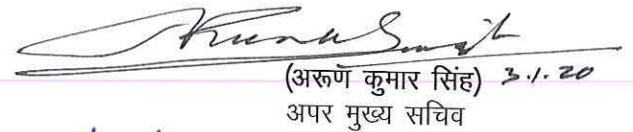 (अरूण कुमार सिंह) 3.1.20
अपर मुख्य सचिव